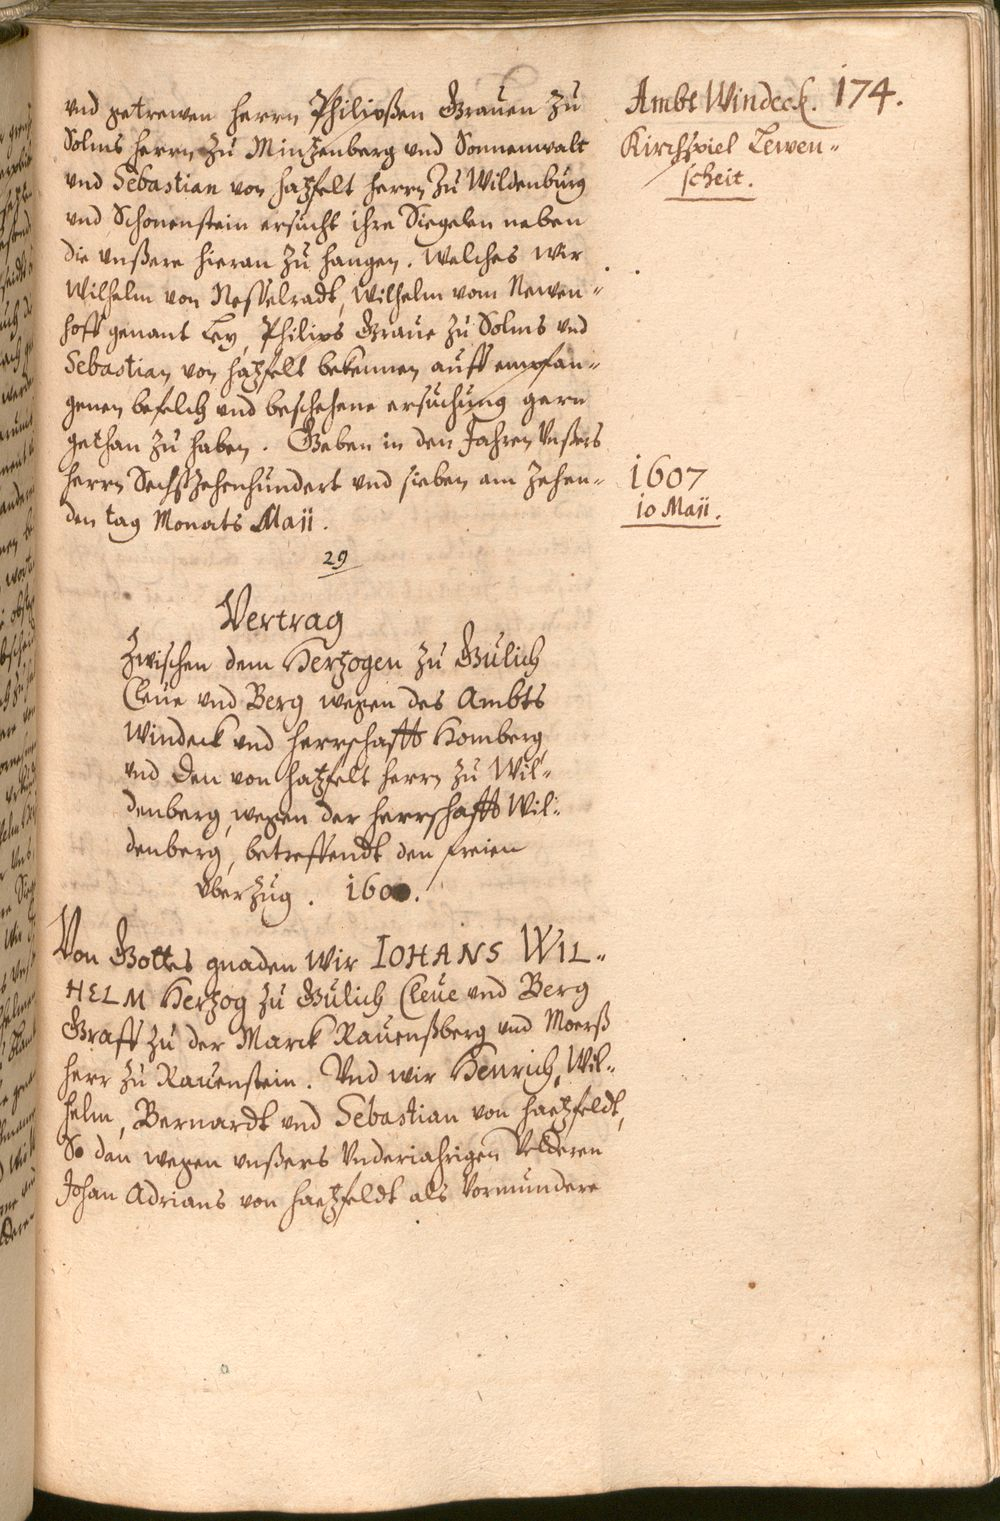 Ambt Windeck. 174.
Kirchspiel Lewen-
scheit.
vnd getrewen herrn Philipßen Grauen zu
Solms herrn zu Mintzenberg vnd Sonnenwalt
vnd Sebastian von hatzfelt herrn zu Wildenburg
vnd Schonenstein ersucht ihre Siegelen neben
die vnßere hieran zu hangen. Welches wir
Wilhelm von Nesselradt, Wilhelm vom Newen-
hoff genant Ley, Philips Graue zu Solms vnd
Sebastian von hatzfelt bekennen auff empfan-
genen befelch vnd beschehene ersuchung gern
gethan zu haben. Geben in den Jahren Vnßers
herrn Sechszehenhundert vnd sieben am Zehen-
den tag Monats Maii.
1607
10 Maii.
29
Vertrag
Zwischen dem Hertzogen zu Gulich
Cleue vnd Berg wegen des Ambts
Windeck vnd herrschafft Homberg
vnd den von hatzfelt herrn zu Wil-
denberg, wegen der herrschafft Wil-
denberg, betreffendt den freien
vberzug. 1600.
Von Gottes gnaden Wir IOHANS WIL-
HELM Hertzog zu Gulich Cleue vnd Berg
Graff zu der Marck Rauenßberg vnd Moerß
herr zu Rauenstein. Vnd wir Henrich, Wil-
helm, Bernardt vnd Sebastian von haetzfeldt,
So dan wegen vnßers Vnderiahrigen Vedderen
Johan Adrians von haetzfeldt als Vormundere